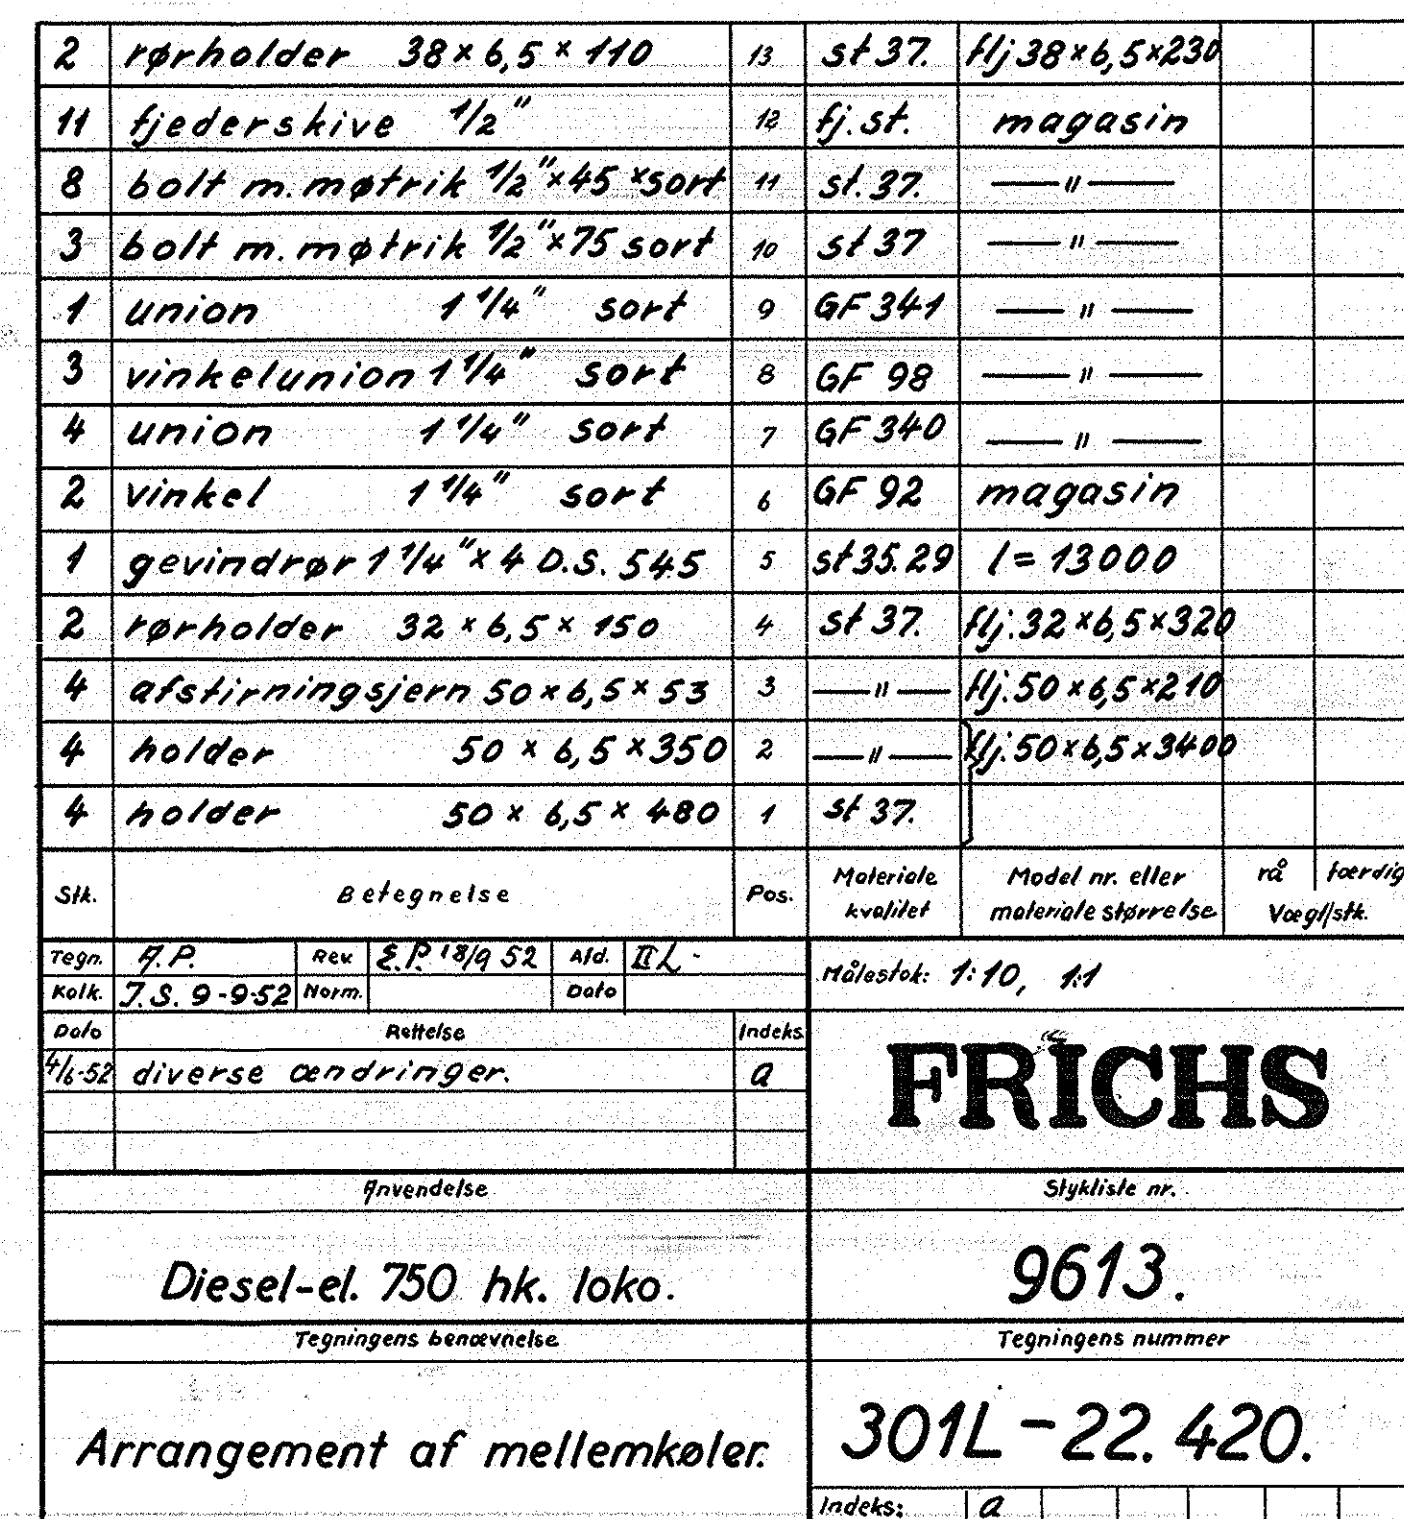 2 rørholder 38 × 6,5 × 110 13 st 37. flj 38×6,5×230
11 fjederskive 1/2" 12 fj. st. magasin
8 bolt m. møtrik 1/2"×45 × sort 11 st. 37. —〃—
3 bolt m. møtrik 1/2"×75 sort 10 st 37 —〃—
1 union 1 1/4" sort 9 GF 341 —〃—
3 vinkelunion 1 1/4" sort 8 GF 98 —〃—
4 union 1 1/4" sort 7 GF 340 —〃—
2 vinkel 1 1/4" sort 6 GF 92 magasin
1 gevindrør 1 1/4" × 4 D.S. 545 5 st 35.29 l = 13000
2 rørholder 32 × 6,5 × 150 4 st 37. flj. 32 × 6,5 × 320
4 afstirningsjern 50 × 6,5 × 53 3 —〃— flj. 50 × 6,5 × 210
4 holder 50 × 6,5 × 350 2 —〃— flj. 50 × 6,5 × 3400
4 holder 50 × 6,5 × 480 1 st 37.
Stk. Betegnelse Pos. Materiale kvalitet Model nr. eller materiale størrelse rå færdig Vægt/stk.
Tegn. A.P. Rev. E.P. 18/9 52 Afd. II L.
Kalk. J.S. 9-9-52 Norm. Dato
Målestok: 1:10, 1:1
Dato Rettelse Indeks
4/6-52 diverse ændringer. a
FRICHS
Anvendelse Stykliste nr.
Diesel-el. 750 hk. loko. 9613.
Tegningens benævnelse Tegningens nummer
Arrangement af mellemkøler. 301L-22.420.
Indeks: a